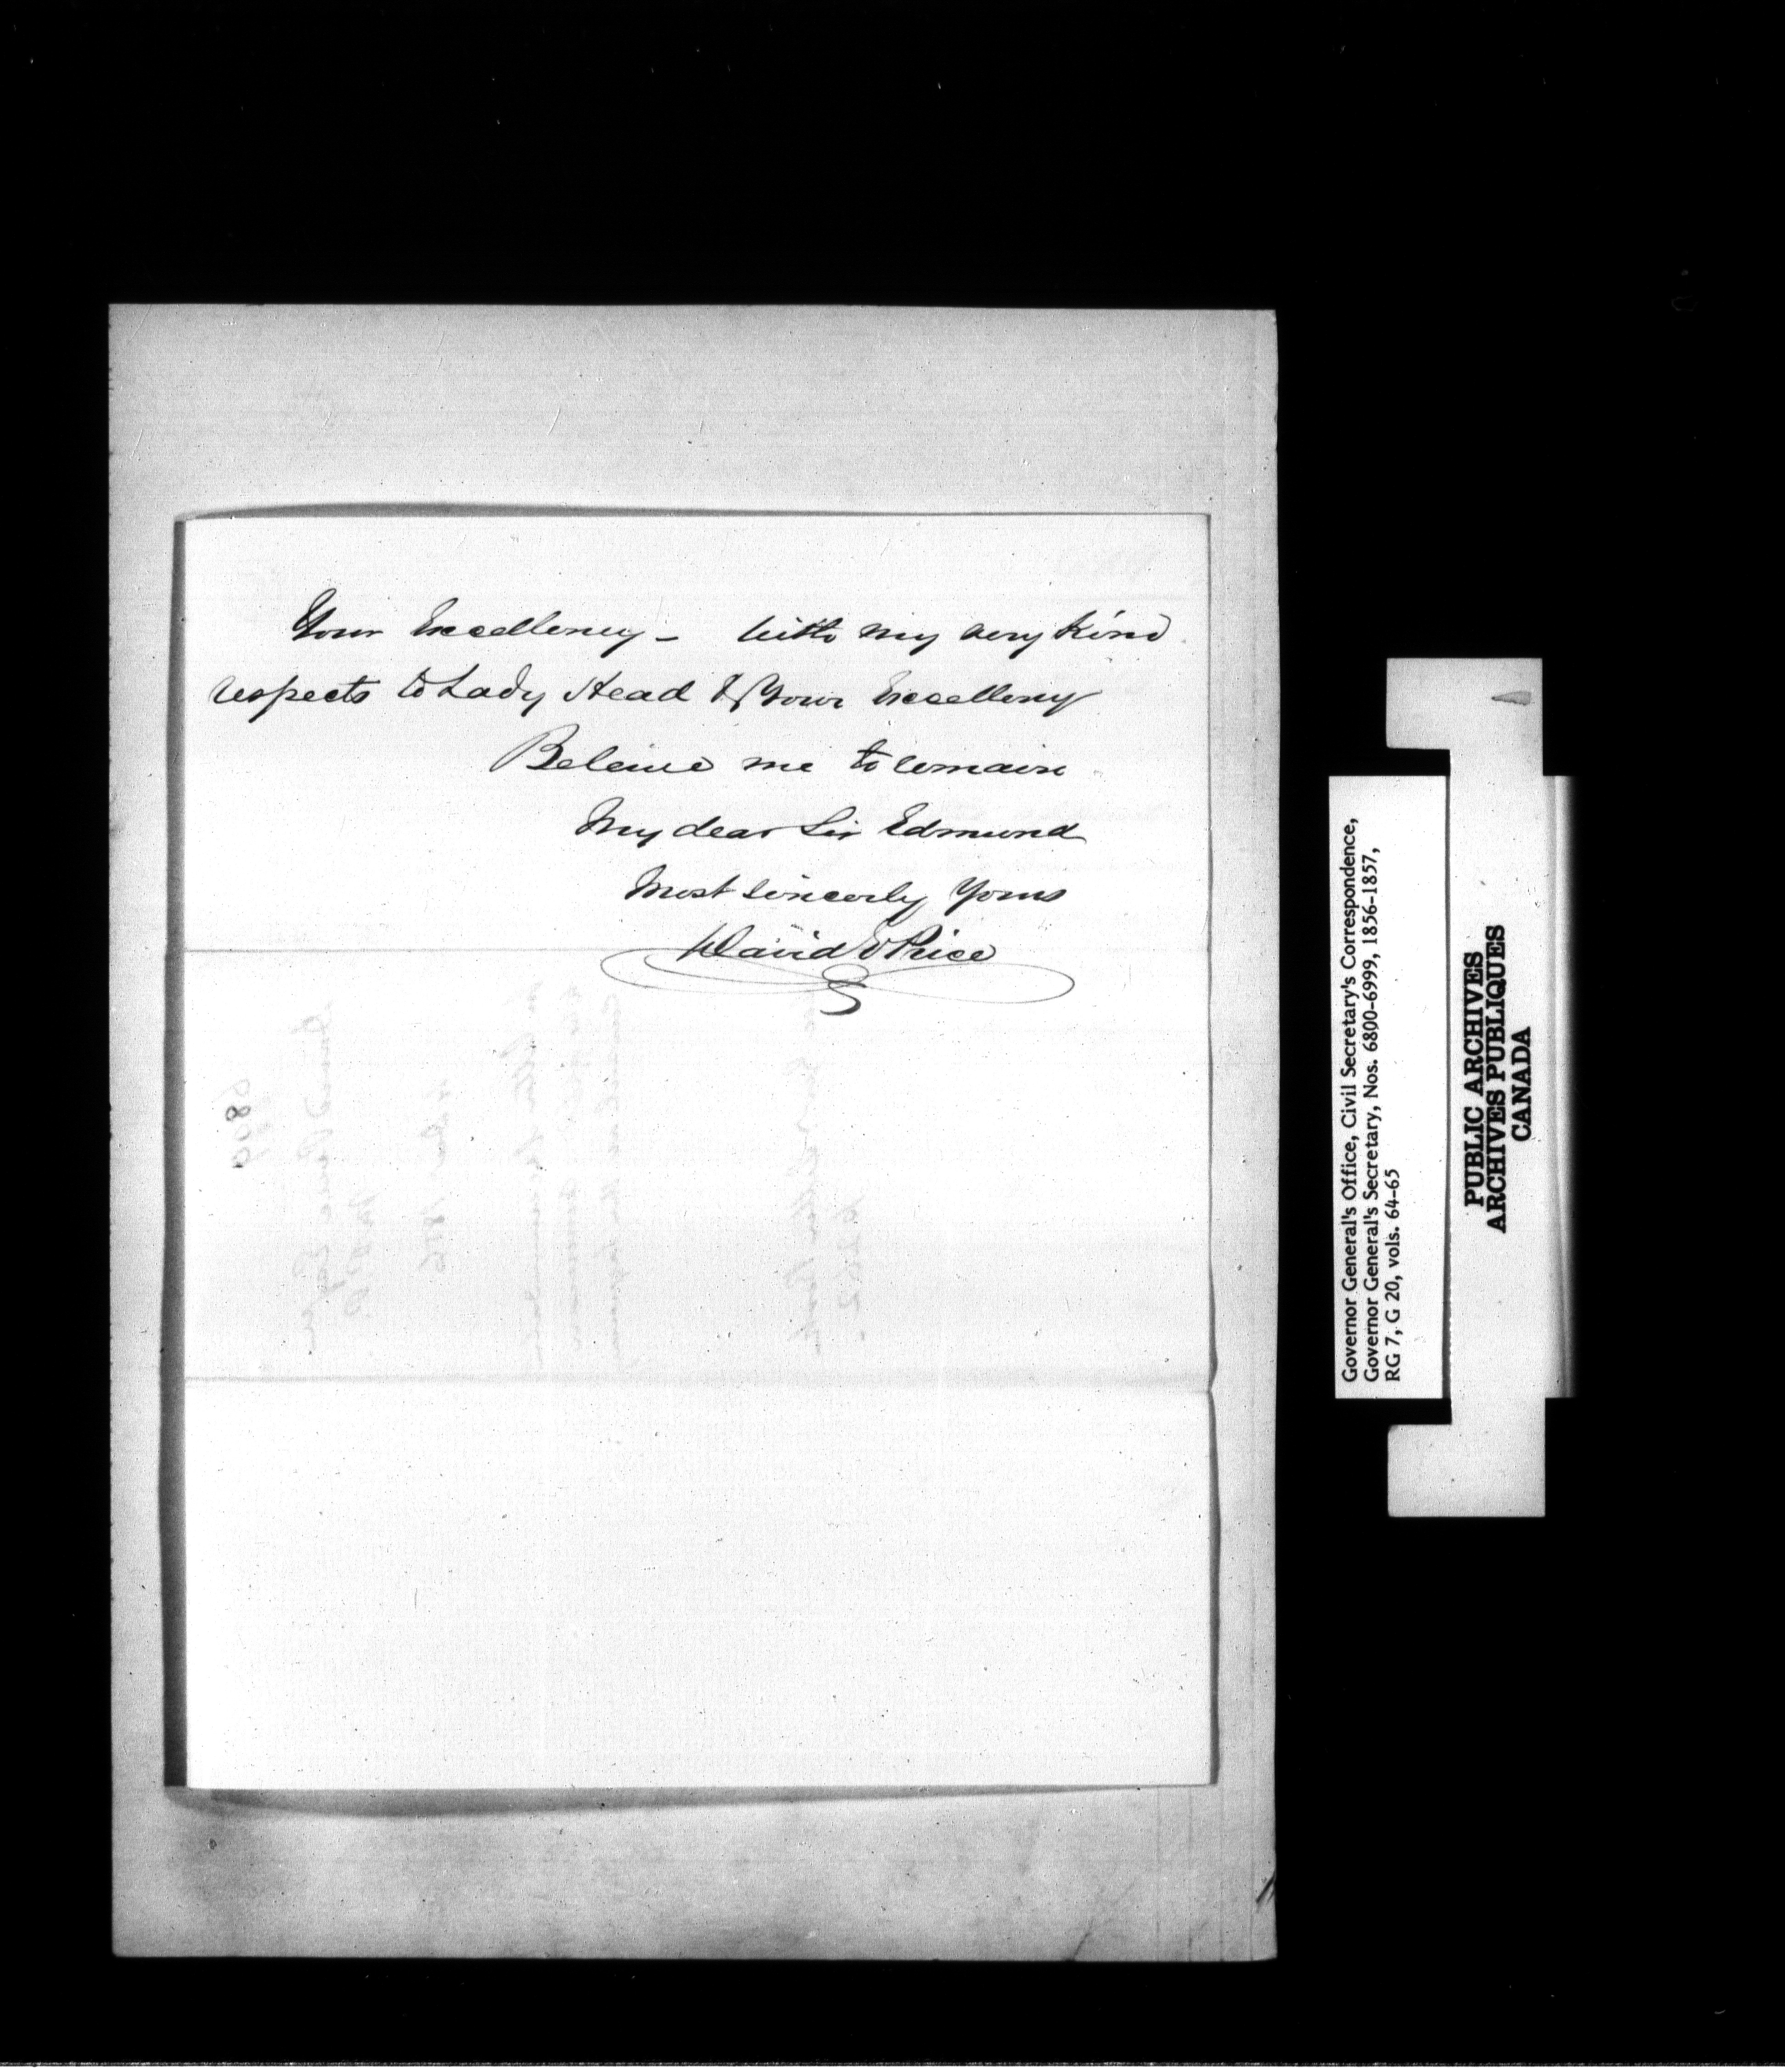 Your Excellency - With my very kind
respects to Lady Head & Your Excellency
Beleive me to remain
My dear Sir Edmund
Most sincerly Yours
David E Price
Governor General's Office, Civil Secretary's Correspondence,
Governor General's Secretary, Nos. 6800-6999, 1856-1857,
RG 7, G 20, vols. 64-65
PUBLIC ARCHIVES
ARCHIVES PUBLIQUES
CANADA